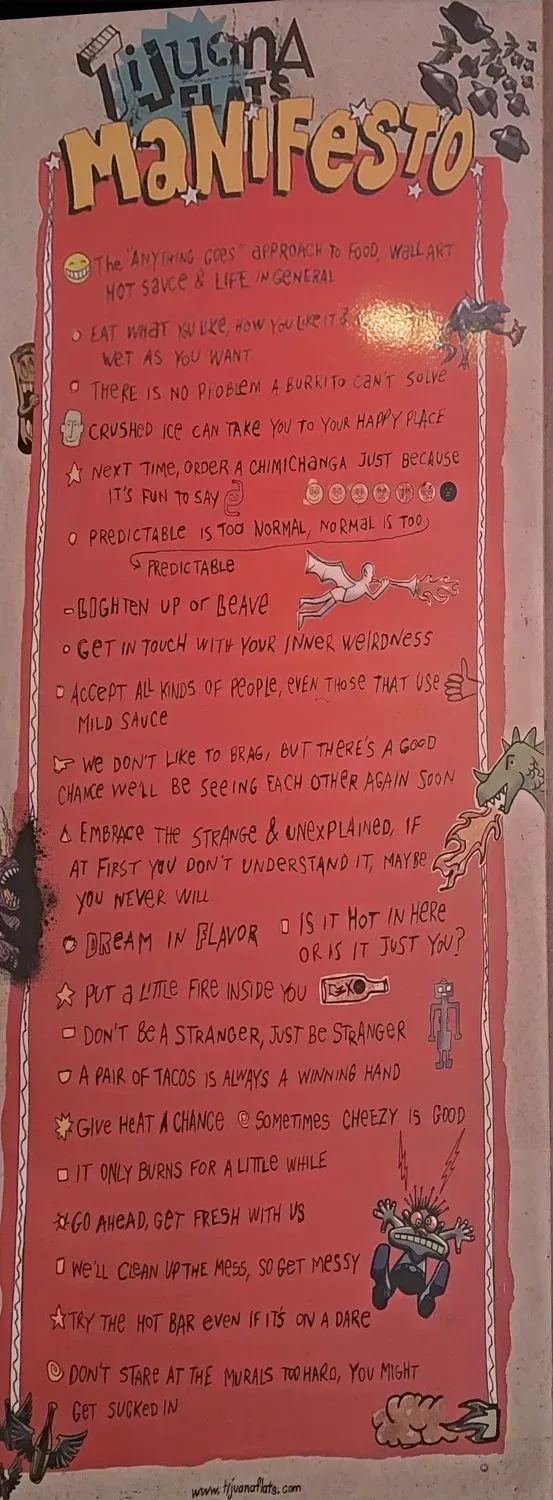 TijuanA
FLATS
MaNiFeSTO
The "ANYTHING GOES" APPROACH TO FOOD, WALL ART
HOT SAUCE & LIFE IN GENERAL
EAT WHAT YOU LIKE, HOW YOU LIKE IT &
WET AS YOU WANT
THERE IS NO PROBLEM A BURRITO CAN'T SOLVE
CRUSHED ICE CAN TAKE YOU TO YOUR HAPPY PLACE
NEXT TIME, ORDER A CHIMICHANGA JUST BECAUSE
IT'S FUN TO SAY
PREDICTABLE IS TOO NORMAL, NORMAL IS TOO
PREDICTABLE
LIGHTEN UP or LEAVE
GET IN TOUCH WITH YOUR INNER WEIRDNESS
ACCEPT ALL KINDS OF PEOPLE, EVEN THOSE THAT USE
MILD SAUCE
WE DON'T LIKE TO BRAG, BUT THERE'S A GOOD
CHANCE WE'LL BE SEEING EACH OTHER AGAIN SOON
EMBRACE THE STRANGE & UNEXPLAINED, IF
AT FIRST YOU DON'T UNDERSTAND IT, MAYBE
YOU NEVER WILL
DREAM IN FLAVOR
IS IT HOT IN HERE
OR IS IT JUST YOU?
PUT A LITTLE FIRE INSIDE YOU
DON'T BE A STRANGER, JUST BE STRANGER
A PAIR OF TACOS IS ALWAYS A WINNING HAND
GIVE HEAT A CHANCE
SOMETIMES CHEEZY IS GOOD
IT ONLY BURNS FOR A LITTLE WHILE
GO AHEAD, GET FRESH WITH US
WE'LL CLEAN UP THE MESS, SO GET MESSY
TRY THE HOT BAR EVEN IF IT'S ON A DARE
DON'T STARE AT THE MURALS TOO HARD, YOU MIGHT
GET SUCKED IN
www.tijuanaflats.com